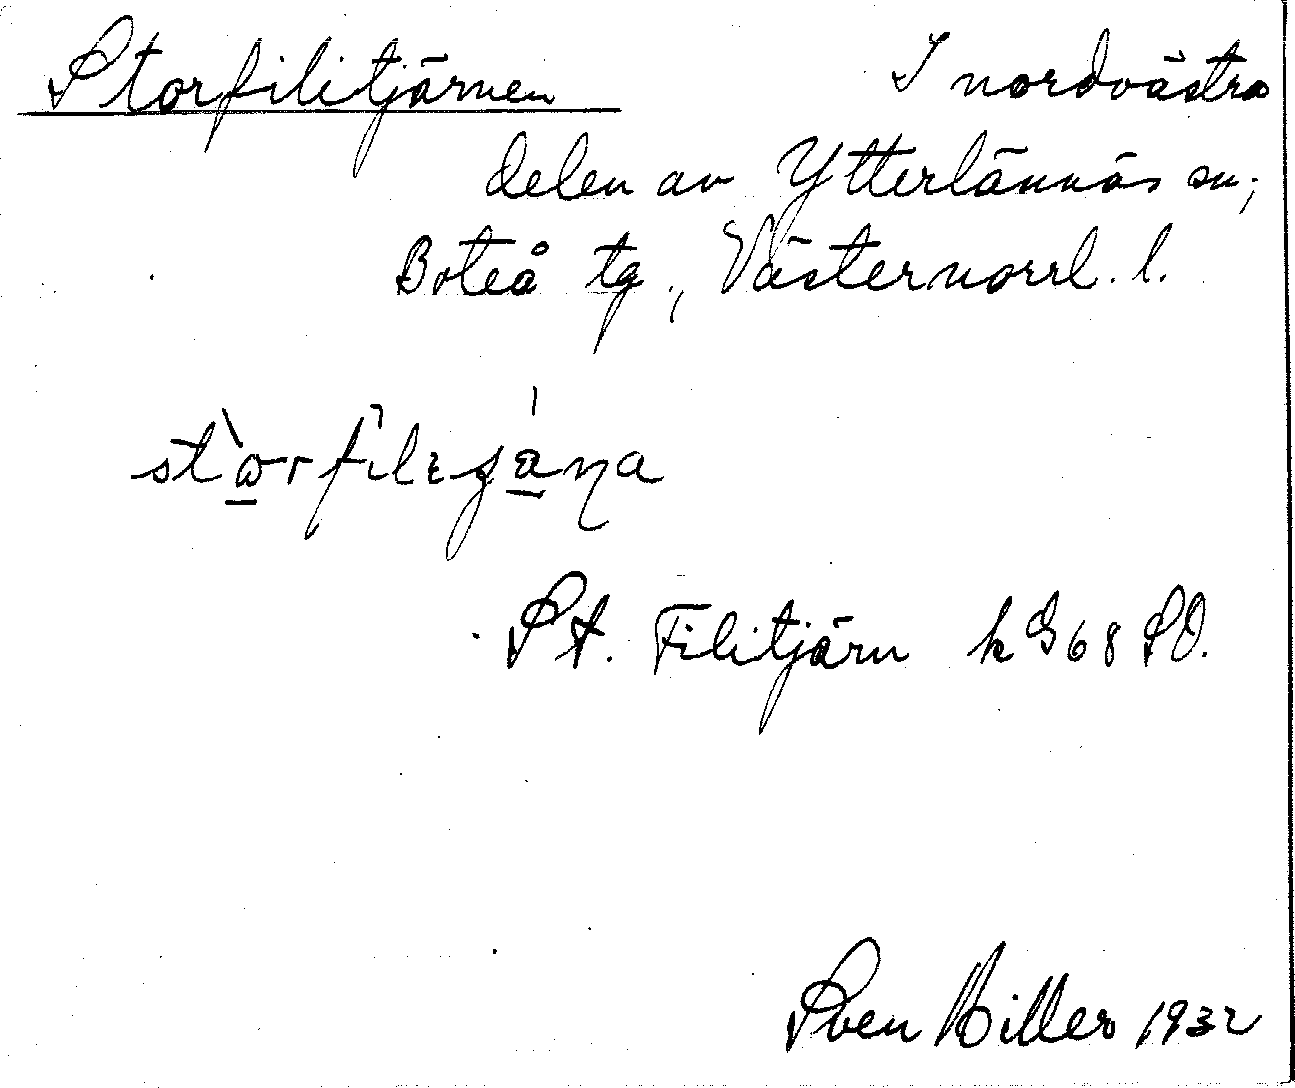 Storfilitjärnen I nordvästra
delen av Ytterlännäs sn;
Boteå tg., Västernorrl. l.
St. Filitjärn k G68 SO.
Sven Hiller 1932